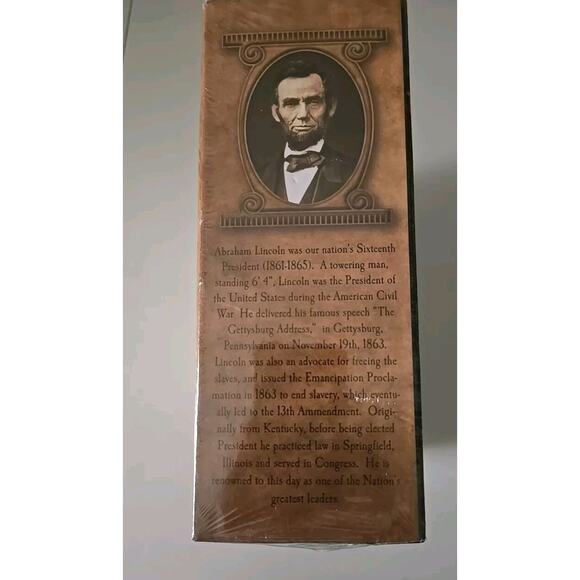 Abraham Lincoln was our nation's Sixteenth
President (1861-1865). A towering man,
standing 6' 4", Lincoln was the President of
the United States during the American Civil
War. He delivered his famous speech "The
Gettysburg Address," in Gettysburg,
Pennsylvania on November 19th, 1863.
Lincoln was also an advocate for freeing the
slaves, and issued the Emancipation Procla-
mation in 1863 to end slavery, which eventu-
ally led to the 13th Ammendment. Origi-
nally from Kentucky, before being elected
President he practiced law in Springfield,
Illinois and served in Congress. He is
renowned to this day as one of the Nation's
greatest leaders.